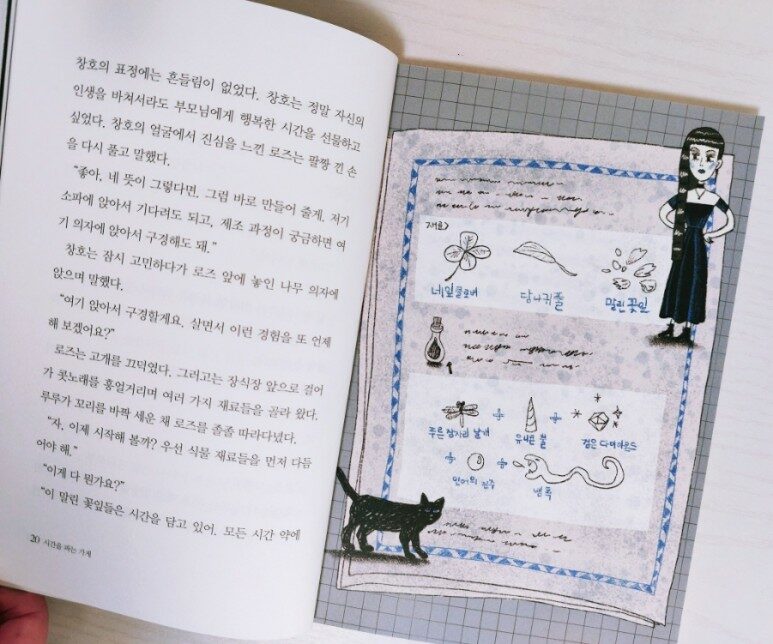 창호의 표정에는 흔들림이 없었다. 창호는 정말 자신의
인생을 바쳐서라도 부모님에게 행복한 시간을 선물하고
싶었다. 창호의 얼굴에서 진심을 느낀 로즈는 팔짱 낀 손
을 다시 풀고 말했다.
“좋아, 네 뜻이 그렇다면. 그럼 바로 만들어 줄게. 저기
소파에 앉아서 기다려도 되고, 제조 과정이 궁금하면 여
기 의자에 앉아서 구경해도 돼.”
창호는 잠시 고민하다가 로즈 앞에 놓인 나무 의자에
앉으며 말했다.
“여기 앉아서 구경할게요. 살면서 이런 경험을 또 언제
해 보겠어요?”
로즈는 고개를 끄덕였다. 그러고는 장식장 앞으로 걸어
가 콧노래를 흥얼거리며 여러 가지 재료들을 골라 왔다.
루루가 꼬리를 바짝 세운 채 로즈를 졸졸 따라다녔다.
“자, 이제 시작해 볼까? 우선 식물 재료들을 먼저 다듬
어야 해.”
“이게 다 뭔가요?”
“이 말린 꽃잎들은 시간을 담고 있어. 모든 시간 약에
20 시간을 파는 가게
재료)
네잎클로버 당나귀풀 말린 꽃잎
주은 잠자리 날개 유니콘 뿔 검은 다이아몬드
인어의 진주 뱀 독